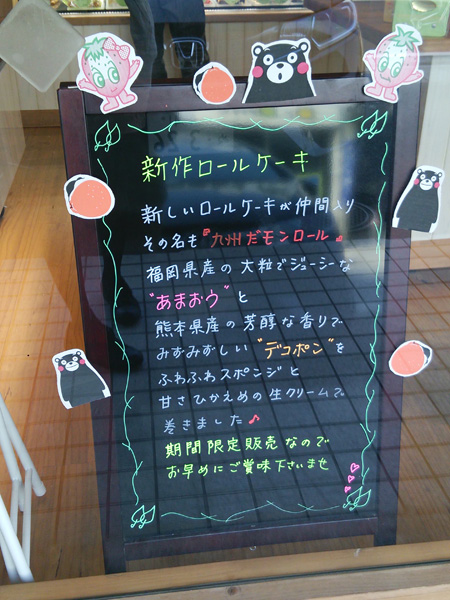 新作ロールケーキ
新しいロールケーキが仲間入り
その名も『九州だモンロール』
福岡県産の大粒でジューシーな
"あまおう"と
熊本県産の芳醇な香りで
みずみずしい"デコポン"を
ふわふわスポンジと
甘さひかえめの生クリームで
巻きました♪
期間限定販売なので
お早めにご賞味下さいませ